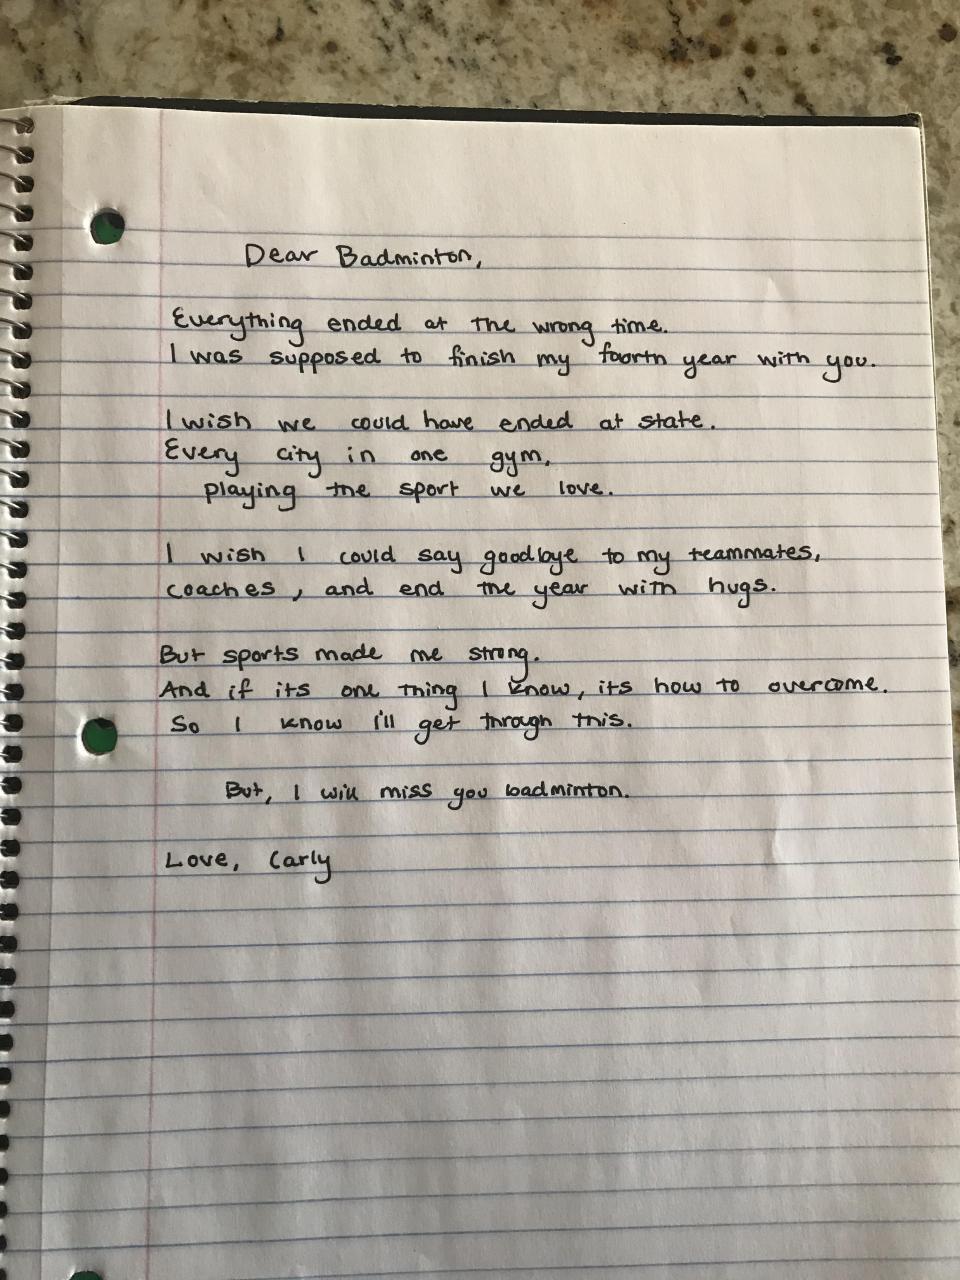 Dear Badminton,
Everything ended at the wrong time.
I was supposed to finish my fourth year with you.
I wish we could have ended at state.
Every city in one gym,
playing the sport we love.
I wish I could say goodbye to my teammates,
coaches, and end the year with hugs.
But sports made me strong.
And if its one thing I know, its how to overcome.
So I know I'll get through this.
But, I will miss you badminton.
Love, Carly